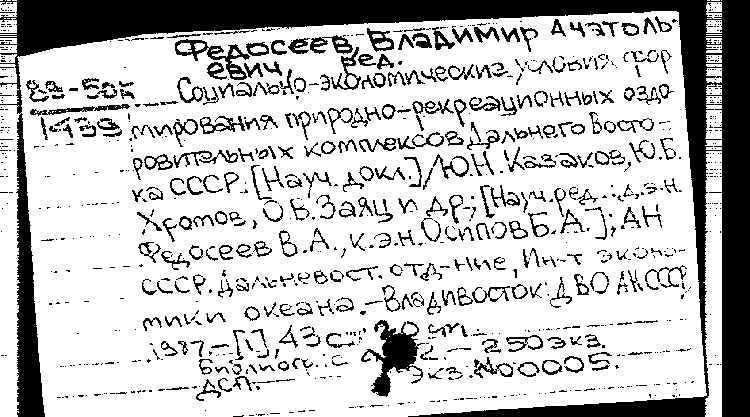 Федосеев, Владимир Анатоль-
евич, ред.
Социально-экономические условия фор
мирования природно-рекреационных оздо-
1439
ровительных комплексов Дальнего Восто-
ка СССР: [Науч. докл.] / Ю.Н. Казаков, Ю.Б.
Хромов, О.Б. Заяц и др.; [Науч. ред.: д.э.н.
Федосеев В.А., к.э.н. Осипов Б.А.]; АН
СССР. Дальневост. отд-ние, Ин-т эконо-
мики океана. – Владивосток: ДВО АН СССР
1987. – [1], 43 с.; 20 см
Библиогр.: с. 2. – 250 экз.
ДСП. Экз. №00005.